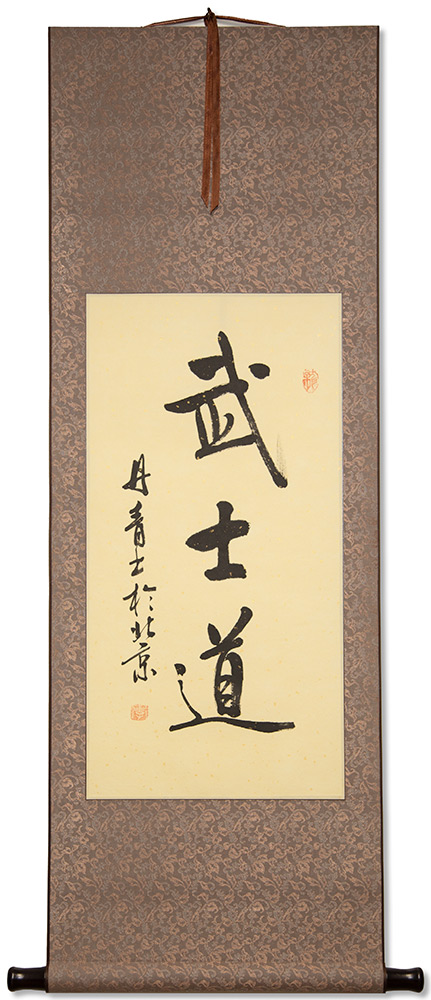 武士道
丹青士於北京